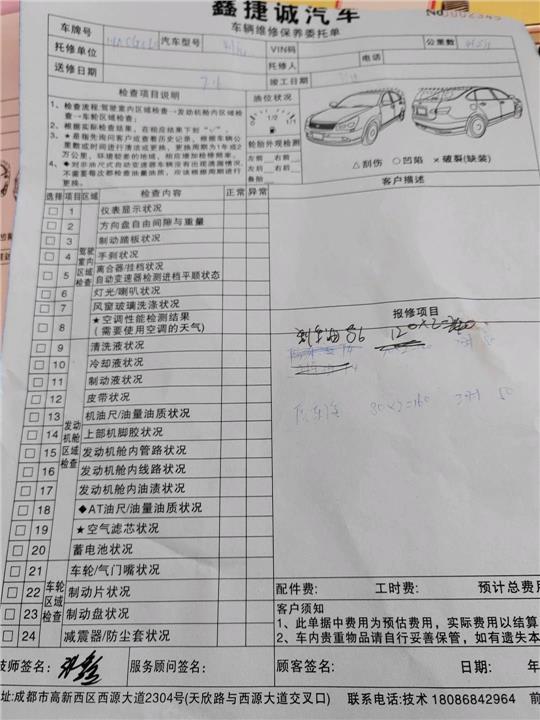 鑫捷诚汽车
车辆维修保养委托单
No
车牌号 汽车型号 VIN码 公里数
托修单位 托修人 电话
送修日期 竣工日期
检查项目说明 油位状况
1、检查流程:驾驶室内区域检查→发动机舱内区域检查→车轮区域检查;
2、根据实际检查结果,在相应结果下划“√”。
3、★是指先询问客户或查看历史记录,根据车辆公里数或时间进行清洁或更换,更换周期为1年或2万公里,环境较差的地域,相应增加检修频率。
4、◆对非油尺式自动变速器车辆没有出现泄漏情况,不需要每次都检查油量油质,应该根据周期进行更换。
0 1/2 1/1
轮胎外观检测
左前 右前
左后 右后
备胎
△刮伤 ○凹陷 ×破裂(缺装)
客户描述
选择 项目 区域 检查内容 正常 异常
驾驶室内区域检查
1 仪表显示状况
2 方向盘自由间隙与重量
3 制动踏板状况
4 手刹状况
5 离合器/挂档状况
自动变速器检测进档平顺状态
6 灯光/喇叭状况
7 风窗玻璃洗涤状况
8 ★空调性能检测结果
(需要使用空调的天气)
报修项目
发动机舱区域检查
9 清洗液状况
10 冷却液状况
11 制动液状况
12 皮带状况
13 机油尺/油量油质状况
14 上部机脚胶状况
15 发动机舱内管路状况
16 发动机舱内线路状况
17 发动机舱内油渍状况
18 ◆AT油尺/油量油质状况
19 ★空气滤芯状况
20 蓄电池状况
车轮区域检查
21 车轮/气门嘴状况
22 制动片状况
23 制动盘状况
24 减震器/防尘套状况
配件费: 工时费: 预计总费用
客户须知
1、此单据中费用为预估费用,实际费用以结算
2、车内贵重物品请自行妥善保管,如有遗失本
技师签名: 服务顾问签名: 顾客签名: 日期: 年
址:成都市高新西区西源大道2304号(天欣路与西源大道交叉口) 联系电话:技术 18086842964 前